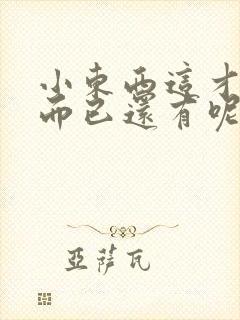 小東西這才
而已還有呢
亞薩瓦